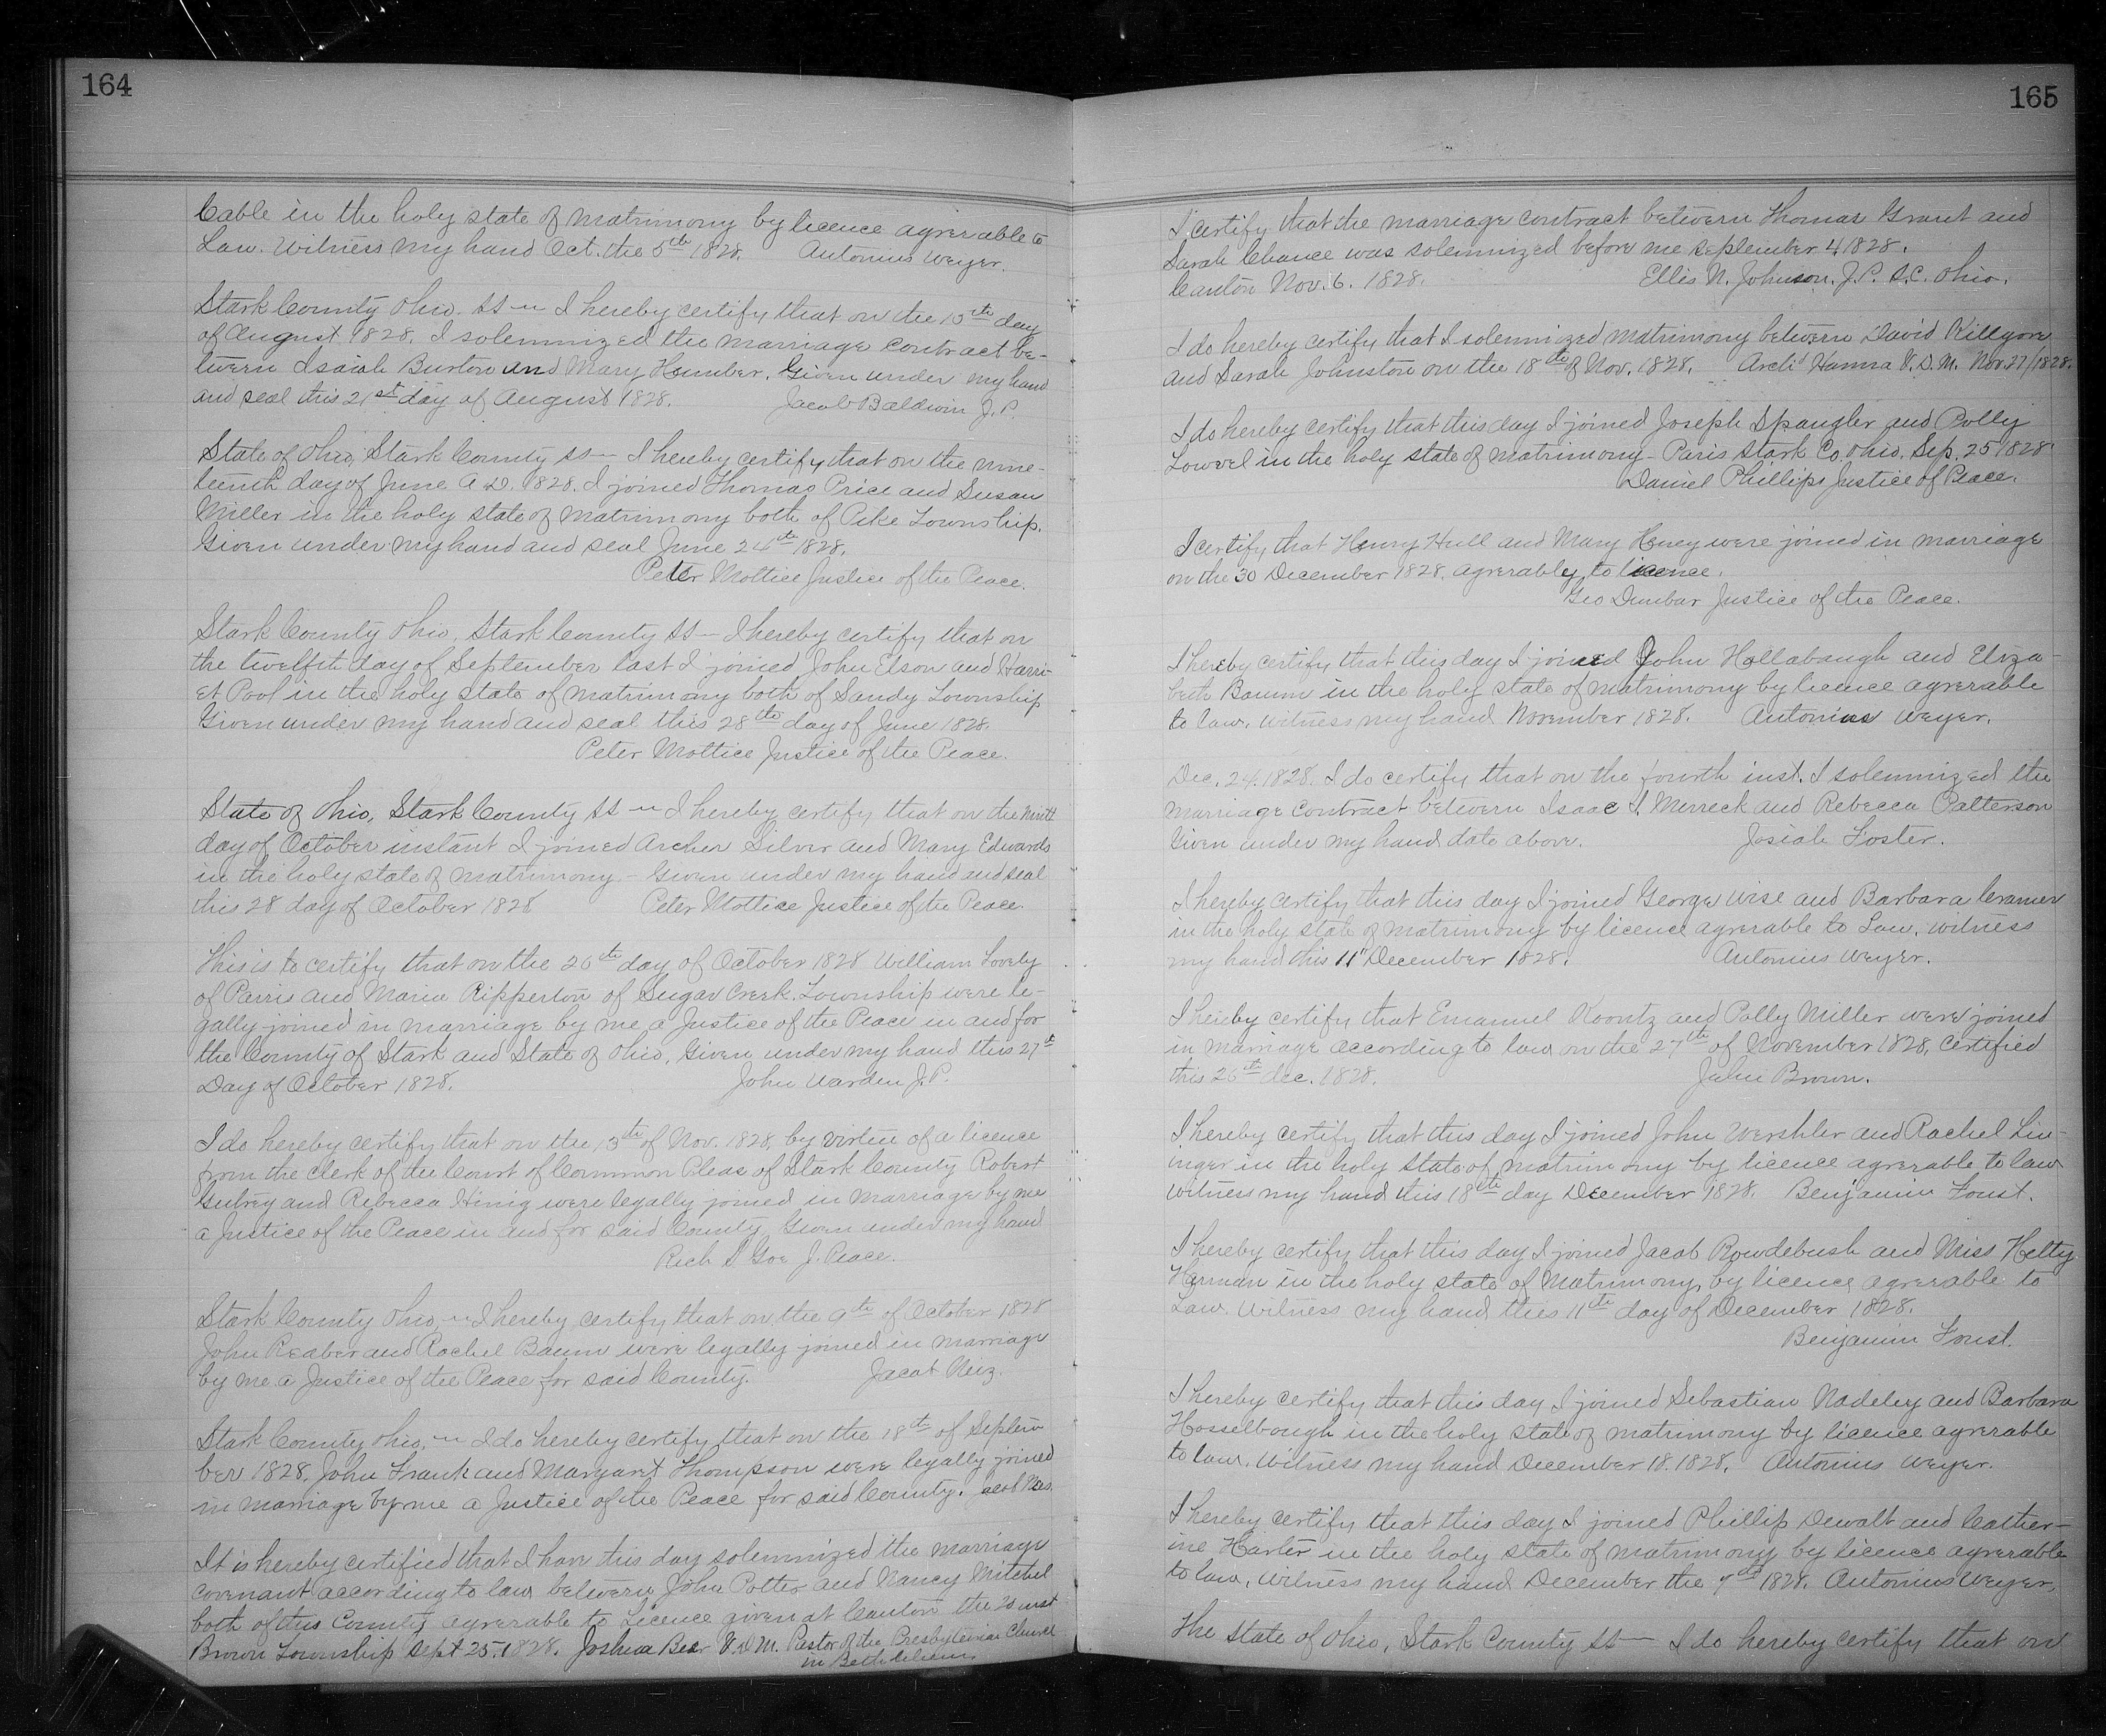 164
Cable in the holy state of matrimony by licence agreeable to
Law. Witness my hand Oct. the 5th 1828. Antonius Weyer.
Stark County Ohio. SS — I hereby certify that on the 15th day
of August 1828. I solemnized the marriage contract be-
tween Isaiah Burton and Mary Humber. Given under my hand
and seal this 21st day of August 1828. Jacob Baldwin J. P.
State of Ohio, Stark County SS — I hereby certify that on the nine-
teenth day of June A.D. 1828. I joined Thomas Price and Susan
Miller in the holy state of matrimony both of Pike Township.
Given under my hand and seal June 24th 1828.
Peter Mottice Justice of the Peace.
Stark County Ohio, Stark County SS — I hereby certify that on
the twelfth day of September last I joined John Elson and Harri-
et Pool in the holy state of matrimony both of Sandy Township
Given under my hand and seal this 28th day of June 1828.
Peter Mottice Justice of the Peace.
State of Ohio, Stark County SS — I hereby certify that on the ninth
day of October instant I joined Archer Silver and Mary Edwards
in the holy state of matrimony – Given under my hand and seal
this 28 day of October 1828 Peter Mottice Justice of the Peace.
This is to certify that on the 26th day of October 1828 William Lovely
of Parris and Maria Ripperton of Sugar Creek Township were le-
gally joined in marriage by me a Justice of the Peace in and for
the County of Stark and State of Ohio, Given under my hand this 27th
Day of October 1828. John Warden J.P.
I do hereby certify that on the 13th of Nov. 1828, by virtue of a licence
from the Clerk of the Court of Common Pleas of Stark County Robert
and Rebecca were legally joined in marriage by me
a Justice of the Peace in and for said County, Given under my hand
Rich S Goe J. Peace.
Stark County Ohio, — I hereby certify that on the 9th of October 1828
John Reaber and Rachel Baum were legally joined in marriage
by me a Justice of the Peace for said County. Jacob
Stark County Ohio, — I do hereby certify that on the 18th of Septem
ber 1828, John Frank and Margaret Thompson were legally joined
in marriage by me a Justice of the Peace for said County. Jacob
It is hereby certified that I have this day solemnized the marriage
covenant according to law between John Potter and Nancy Mitchel
both of this County agreeable to Licence given at Canton the inst
Brown Township Sept 25. 1828. Joshua Beer V.D.M. Pastor of the Presbyterian Church
in Bethlehem
165
I certify that the marriage contract between Thomas Grant and
Sarah Chance was solemnized before me September 4 1828.
Canton Nov. 6. 1828. Ellis N. Johnson. J.P. S.C. Ohio.
I do hereby certify that I solemnized matrimony between David Killgore
and Sarah Johnston on the 18th of Nov. 1828. Archd Hanna V.D.M. Nov. 27/1828.
I do hereby certify that this day I joined Joseph Spangler and Polly
Lowvel in the holy state of matrimony – Paris Stark Co. Ohio, Sep. 25 1828
Daniel Phillips Justice of Peace.
I certify that Henry Hull and Mary Heney were joined in marriage
on the 30 December 1828. agreeably to licence.
Geo Dunbar Justice of the Peace.
I hereby certify that this day I joined John Hollabaugh and Eliza-
beth Baumn in the holy state of matrimony by licence agreeable
to law. witness my hand November 1828. Antonius Weyer.
Dec. 24. 1828. I do certify that on the fourth inst. I solemnized the
marriage contract between Isaac S. Merreck and Rebecca Patterson
Given under my hand date above. Josiah Foster.
I hereby certify that this day I joined George Wise and Barbara Cramer
in the holy state of matrimony by licence agreeable to Law, witness
my hand this 11" December 1828. Antonius Weyer.
I hereby certify that Emanuel Koontz and Polly Miller were joined
in marriage according to law on the 27th of November 1828, Certified
this 26th dec. 1828. John Brown.
I hereby certify that this day I joined John Wershler and Rachel Lin-
inger in the holy state of matrimony by licence agreeable to law
witness my hand this 18th day December 1828. Benjamin Foust.
I hereby certify that this day I joined Jacob Rowdebush and Miss Hetty
Harman in the holy state of Matrimony, by licence agreeable to
Law. Witness my hand this 11th day of December 1828.
Benjamin Foust.
I hereby certify that this day I joined Sebastian Nadeley and Barbara
Hosselbough in the holy state of matrimony by licence agreeable
to law. Witness my hand December 18. 1828. Antonius Weyer.
I hereby certify that this day I joined Phillip Dewalt and Cather-
ine Harter in the holy state of matrimony by licence agreeable
to law, witness my hand December the 7th 1828. Antonius Weyer,
The State of Ohio, Stark County SS — I do hereby certify that on